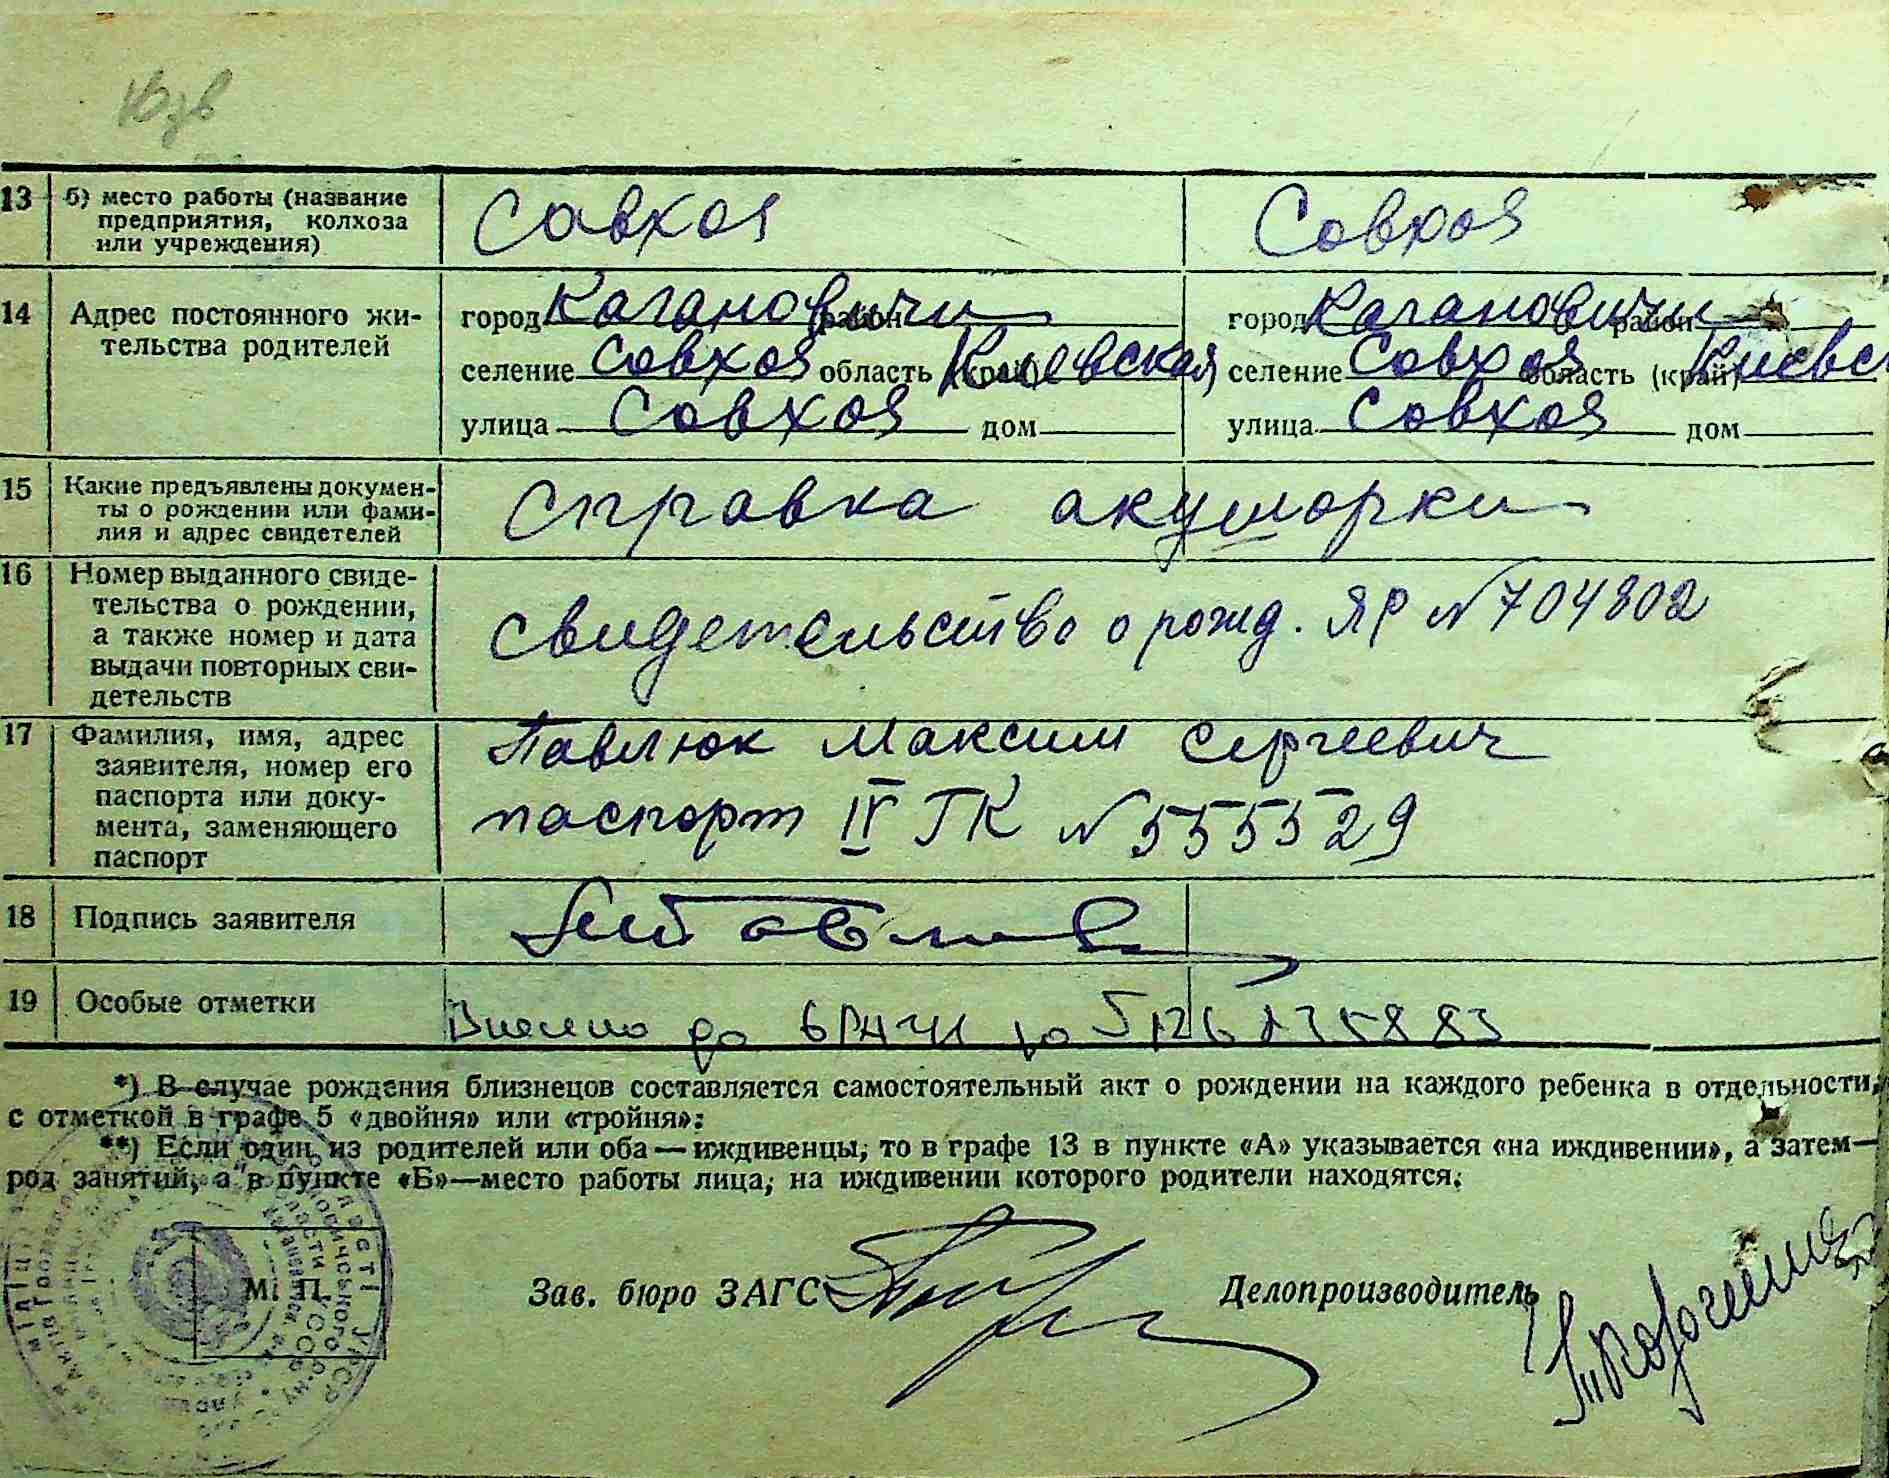 13 б) место работы (название
предприятия, колхоза
или учреждения)
Совхоз Совхоз
14 Адрес постоянного жи-
тельства родителей
город Кагановичи район город Кагановичи район
селение Совхоз область (край) Киевская селение Совхоз область (край) Киевск
улица Совхоз дом улица Совхоз дом
15 Какие предъявлены докумен-
ты о рождении или фами-
лия и адрес свидетелей
Справка акушорки
16 Номер выданного свиде-
тельства о рождении,
а также номер и дата
выдачи повторных сви-
детельств
Свидетельство о рожд. ЯР N 704802
17 Фамилия, имя, адрес
заявителя, номер его
паспорта или доку-
мента, заменяющего
паспорт
Павлюк Максим Сергеевич
паспорт IV ГК N 555529
18 Подпись заявителя
19 Особые отметки
Внесено до
*) В случае рождения близнецов составляется самостоятельный акт о рождении на каждого ребенка в отдельности,
с отметкой в графе 5 «двойня» или «тройня»:
**) Если один из родителей или оба — иждивенцы, то в графе 13 в пункте «А» указывается «на иждивении», а затем—
род занятий, а в пункте «Б»—место работы лица, на иждивении которого родители находятся.
М. П. Зав. бюро ЗАГС Делопроизводитель